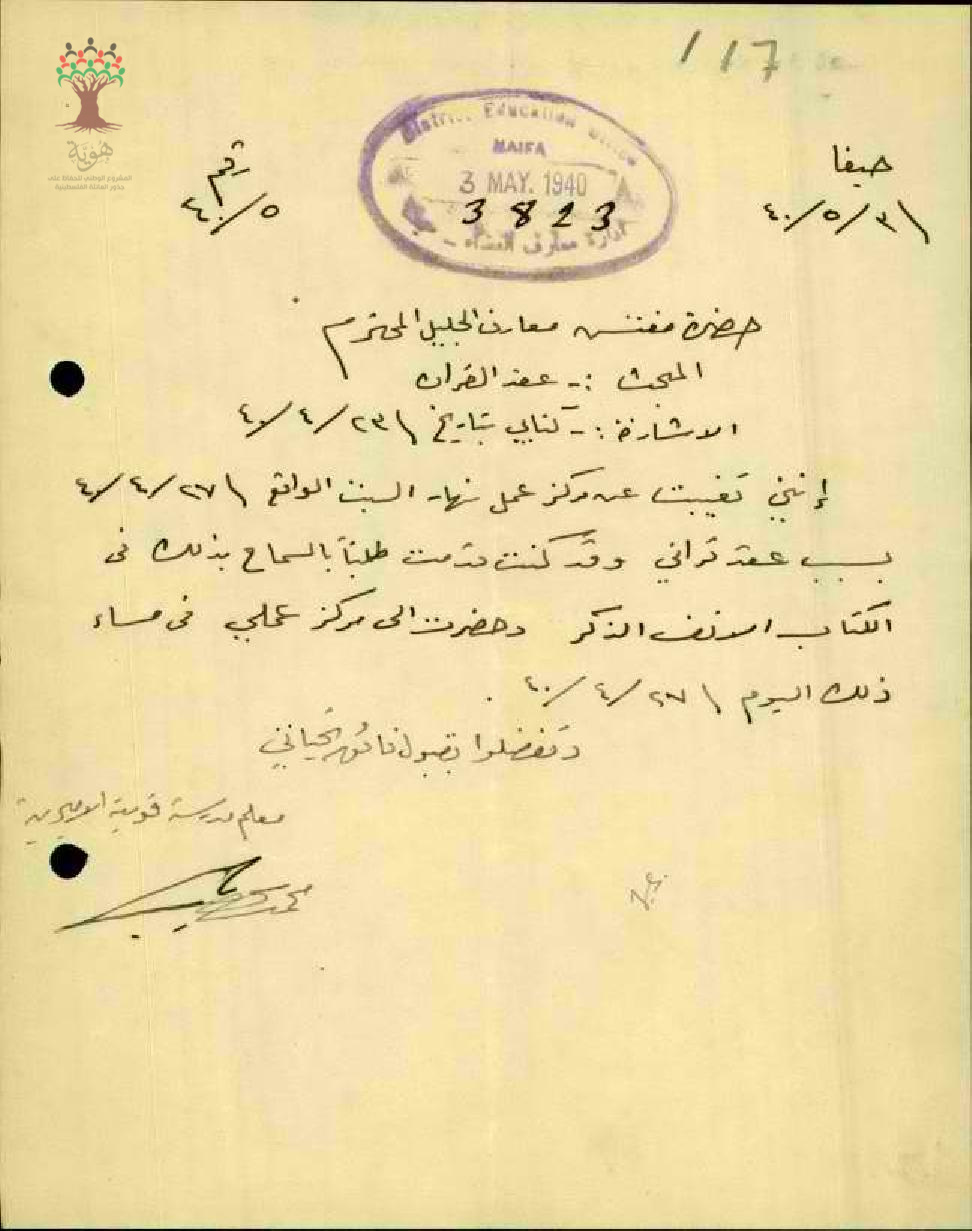 117
هوية
المشروع الوطني للحفاظ على
جذور العائلة الفلسطينية
District Education Office
HAIFA
3 MAY. 1940
3823
ادارة معارف القضاء
حيفا
٤٠/٥/٣
رقم
٤٠/٥
حضرة مفتش معارف الجليل المحترم
المبحث :- عقد القران
الاشارة :- كتابي بتاريخ ٤٠/٤/٢٣
إنني تغيبت عن مركز عملي نهار السبت الواقع ٤٠/٤/٢٧
بسبب عقد قراني وقد كنت قدمت طلباً بالسماح بذلك في
الكتاب الانف الذكر وحضرت الى مركز عملي في مساء
ذلك اليوم ٤٠/٤/٢٧ .
وتفضلوا بقبول فائق تحياتي
معلم مدرسة الاميرية